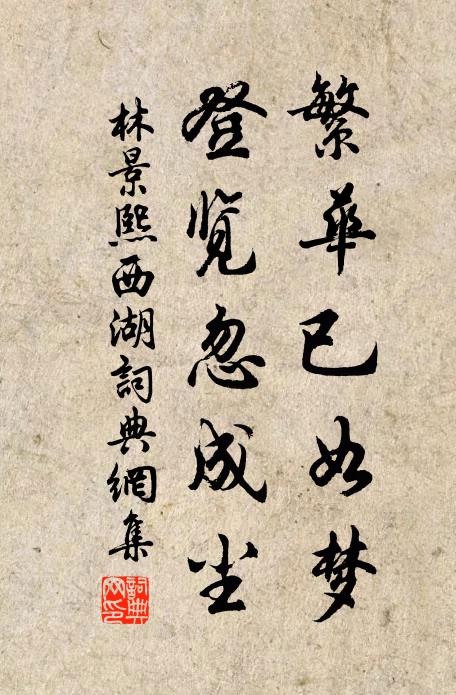 繁華已如梦
登览忽成尘
林景熙西湖詞典網集
詞典